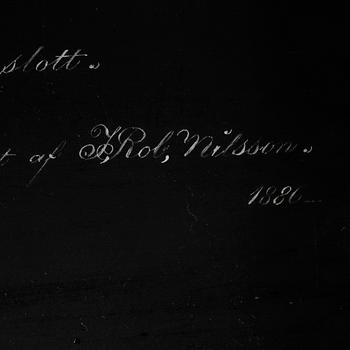 slott.
t af J, Rob, Nilsson.
1886